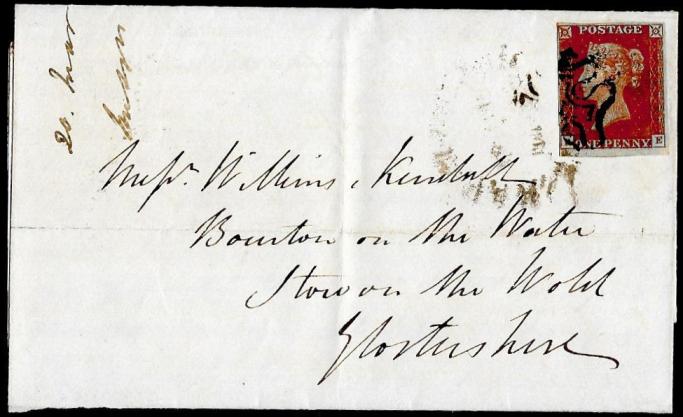 POSTAGE
ONE PENNY
E
20. Mar
Messrs. Wilkins & Kendall
Bourton on the Water
Stow on the Wold
Glostershire